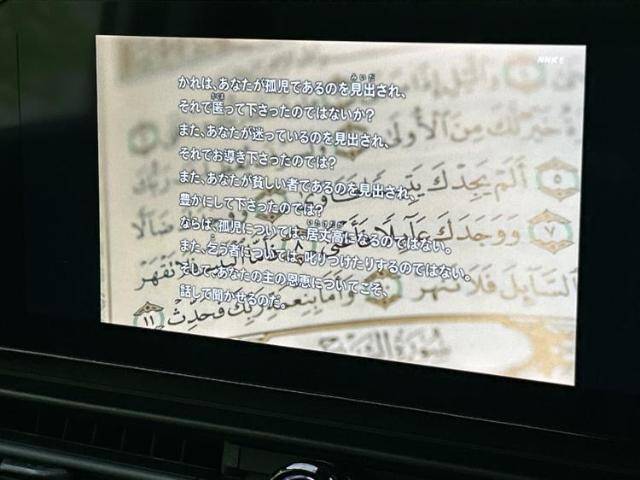 NHK E
かれは、あなたが孤児であるのを見出され、
それで匿って下さったのではないか?
また、あなたが迷っているのを見出され、
それでお導き下さったのでは?
また、あなたが貧しい者であるのを見出され、
豊かにして下さったのでは?
ならば、孤児については、居丈高になるのではない。
また、乞う者については、叱りつけたりするのではない。
そしてあなたの主の恩恵についてこそ、
話して聞かせるのだ。
خير لك من الأولى
ألم يجدك
٥
ووجدك عائلا فأغنى
٧
٨
السائل فلا تنهر
وأما بنعمة ربك فحدث
١١
سورة الشرح